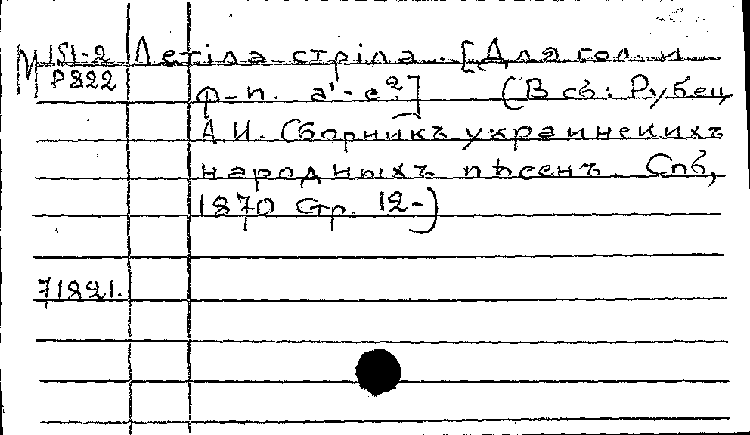 М 151-2 Летіла стріла. [Для гол. и
Р822 ф-п. a'-e²] (В сб: Рубец
А.И. Сборникъ украинскихъ
народныхъ пѣсенъ. Спб,
1870 Стр. 12-)
71821.